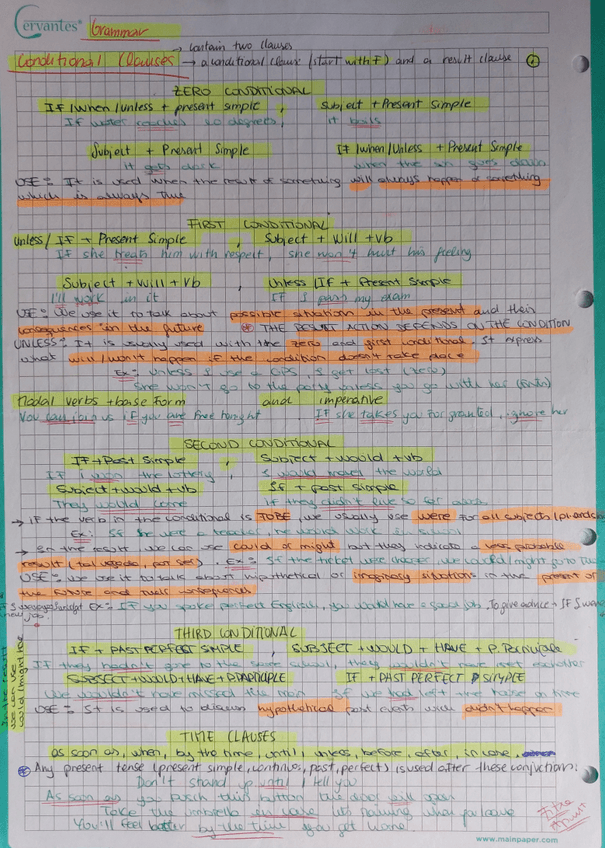 Cervantes®
Grammar
→ contain two clauses
Conditional Clauses → a conditional clause (start with IF) and a result clause
ZERO CONDITIONAL
IF/When/Unless + present simple , Subject + Present Simple
If water reaches degrees, it boils
Subject + Present Simple If/when/Unless + Present Simple
It gets dark when the sun goes down
USE: It is used when the result of something will always happen or something
which is always true
FIRST CONDITIONAL
Unless/IF + Present Simple , Subject + Will + Vb
If she treats him with respect, she won't hurt his feeling
Subject + Will + Vb , Unless/IF + Present Simple
I'll work in it If I pass my exam
USE: We use it to talk about possible situation in the present and their
consequences in the future * THE RESULT ACTION DEPENDS ON THE CONDITION
UNLESS: It is usually used with the zero and first conditional. It express
what will/won't happen if the condition doesn't take place
Ex: Unless I use a GPS, I get lost (zero)
She won't go to the party unless you go with her (first)
Modal verbs + base Form and imperative
You can join us if you are free tonight If she takes you for granted, ignore her
SECOND CONDITIONAL
IF + Past Simple , Subject + would + vb
If I won the lottery, I would travel the world
Subject + would + vb If + past simple
They would come If they didn't live so far away
→ IF the verb in the conditional is TO BE, we usually use were for all subjects
Ex: If he
→ In the result we can use could or might but they indicate a less probable
result . Ex: If the ticket was cheaper, we could/might go to
USE: We use it to talk about hypothetical or imaginary situation in the present or
the future and
Ex: If you spoke perfect English, you would have a good job. To give advice → IF I were
new job.
In the result
we can use
could/might have
THIRD CONDITIONAL
IF + PAST PERFECT SIMPLE , SUBJECT + WOULD + HAVE + P. Participle
If they hadn't gone to the same school, they wouldn't have met eachother
SUBJECT + WOULD + HAVE + P.PARTICIPLE IF + PAST PERFECT SIMPLE
We wouldn't have missed the train If we had left the house on time
USE: It is used to discuss hypothetical past events which didn't happen
TIME CLAUSES
as soon as, when, by the time, until, unless, before, after, in case,
* Any present tense (present simple, continuous, past, perfect) is used after these conjuctions:
Don't stand up until I tell you
As soon as you push this button the door will open
Take the umbrella in case it's raining when you leave
You'll feel better by the time you get home
www.mainpaper.com